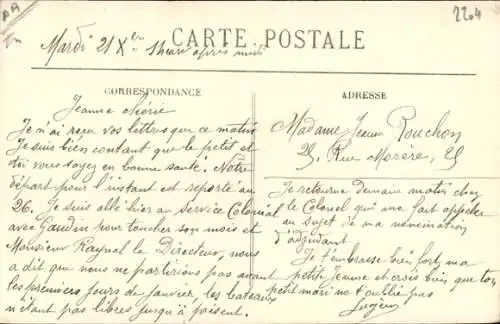 2204
Mardi 21 Xbre 1 heure après midi
CARTE POSTALE
CORRESPONDANCE
ADRESSE
Jeanne chérie
Je n'ai reçu vos lettres que ce matin
Je suis bien content que le petit et
toi vous soyez en bonne santé. Notre
départ pour l'instant est reporté au
26. Je suis allé hier au service Colonial
avec Gaudin pour toucher son mois et
Monsieur Raynal le Directeur, nous
a dit que nous ne partirions pas avant
les premiers jours de janvier, les bateaux
n'étant pas libres jusqu'à présent.
Madame Jeanne Rouchon
25, Rue Morère, 25
Je retourne demain matin chez
le Colonel qui me fait appeler
au sujet de ma nomination
d'adjudant
Je t'embrasse bien fort ma
petite Jeanne et crois bien que ton
petit mari ne t'oublie pas
Eugène